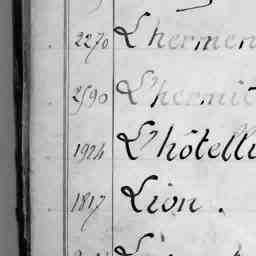 2270 Lhermen
2590 L'hermit
1924 L'hôtelli
1817 Lion.